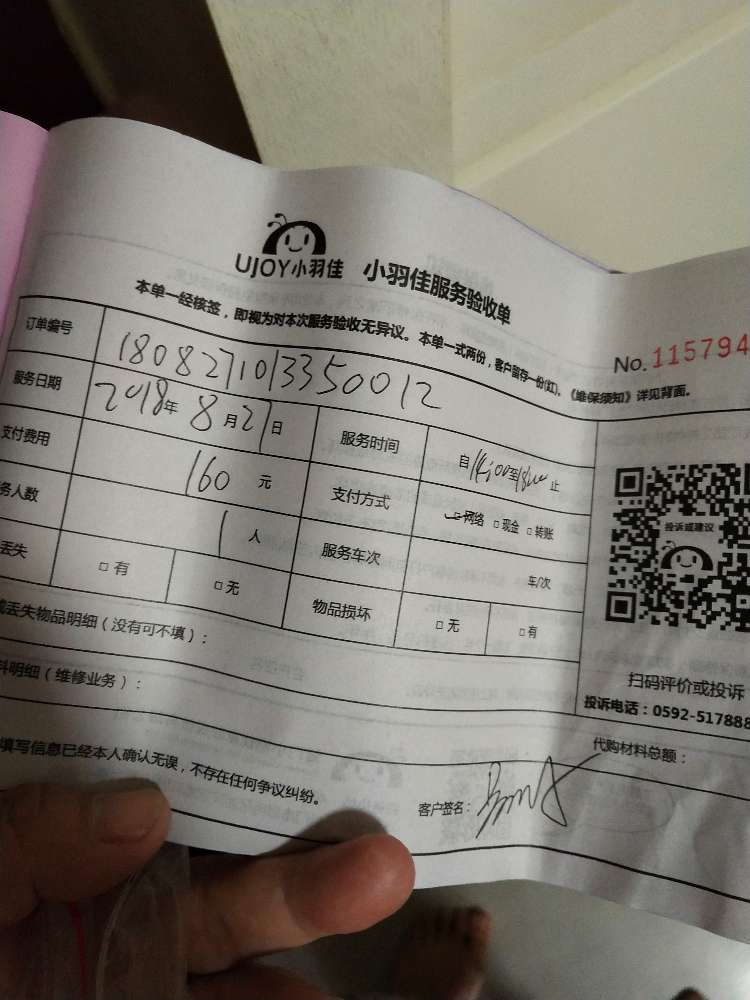 UJOY小羽佳 小羽佳服务验收单
本单一经核签，即视为对本次服务验收无异议。本单一式两份，客户留存一份(红)。《维保须知》详见背面。
No. 115794
订单编号 1808271013350012
服务日期 2018年 8月27日 服务时间 自14:00至18:00止
支付费用 160 元 支付方式 网络 现金 转账
务人数 1 人 服务车次 车/次
丢失 有 无 物品损坏 无 有
投诉或建议
丢失物品明细（没有可不填）：
料明细（维修业务）：
扫码评价或投诉
投诉电话：0592-517888
代购材料总额：
填写信息已经本人确认无误，不存在任何争议纠纷。
客户签名：